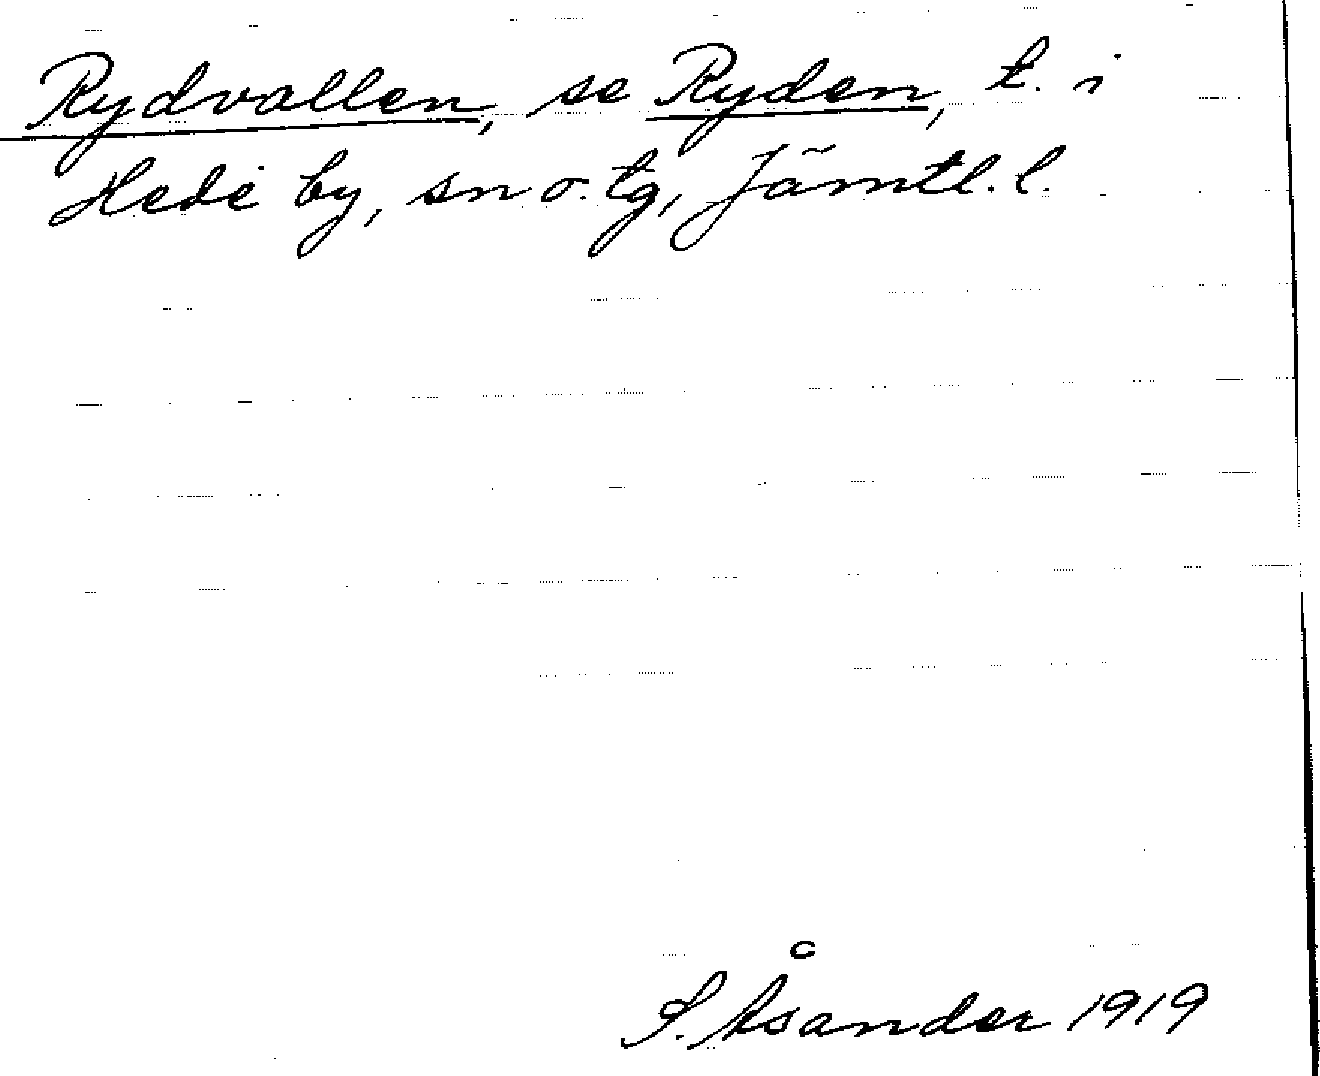 Rydvallen, se Ryden, t. i
Hede by, sn o. tg, Jämtl. l.
S. Åsander 1919